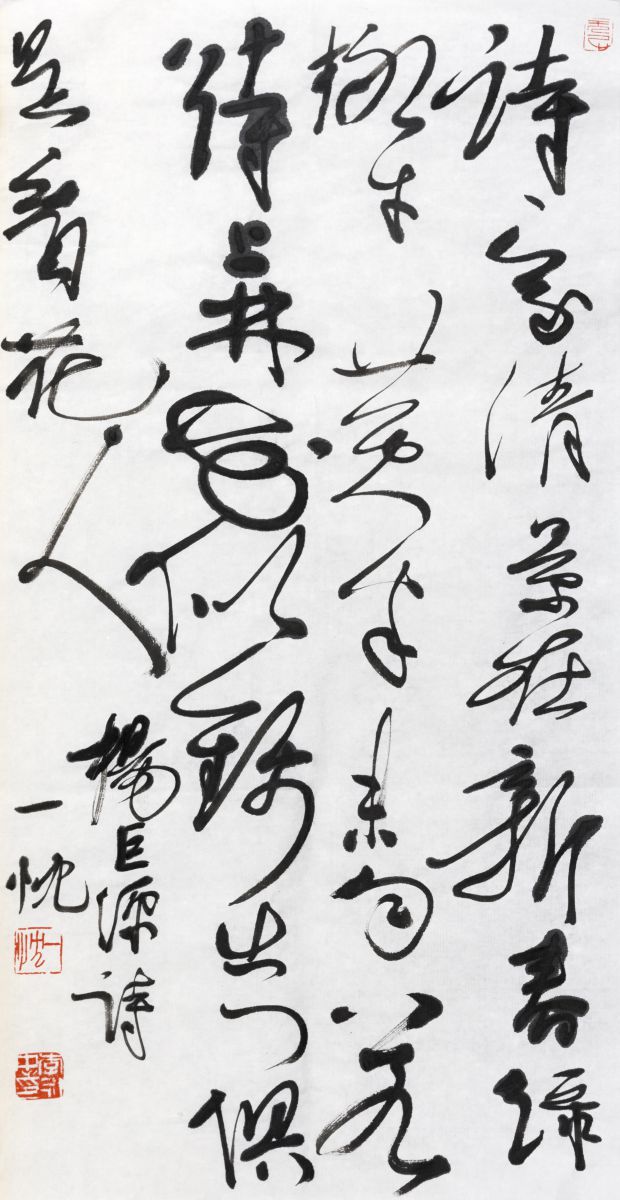 詩家清景在新春綠
柳才黄半未匀若
待上林花似錦出門俱
是看花人
楊巨源詩
一忱
一忱